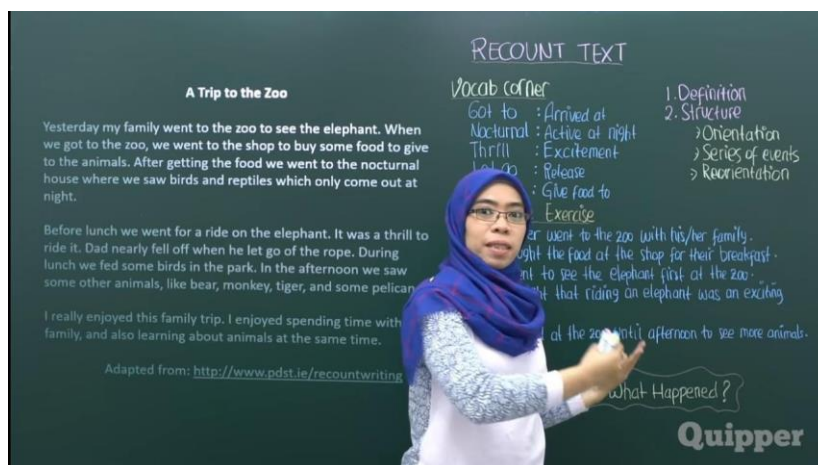 A Trip to the Zoo
Yesterday my family went to the zoo to see the elephant. When
we got to the zoo, we went to the shop to buy some food to give
to the animals. After getting the food we went to the nocturnal
house where we saw birds and reptiles which only come out at
night.
Before lunch we went for a ride on the elephant. It was a thrill to
ride it. Dad nearly fell off when he let go of the rope. During
lunch we fed some birds in the park. In the afternoon we saw
some other animals, like bear, monkey, tiger, and some pelican
I really enjoyed this family trip. I enjoyed spending time with
family, and also learning about animals at the same time.
Adapted from: http://www.pdst.ie/recountwriting
RECOUNT TEXT
Vocab corner
Got to : Arrived at
Nocturnal : Active at night
Thrill : Excitement
Let go : Release
: Give food to
1. Definition
2. Structure
> Orientation
> Series of events
> Reorientation
Exercise
er went to the zoo with his/her family.
ght the food at the shop for their breakfast.
nt to see the elephant first at the zoo.
ht that riding an elephant was an exciting
at the zoo until afternoon to see more animals.
What Happened?
Quipper